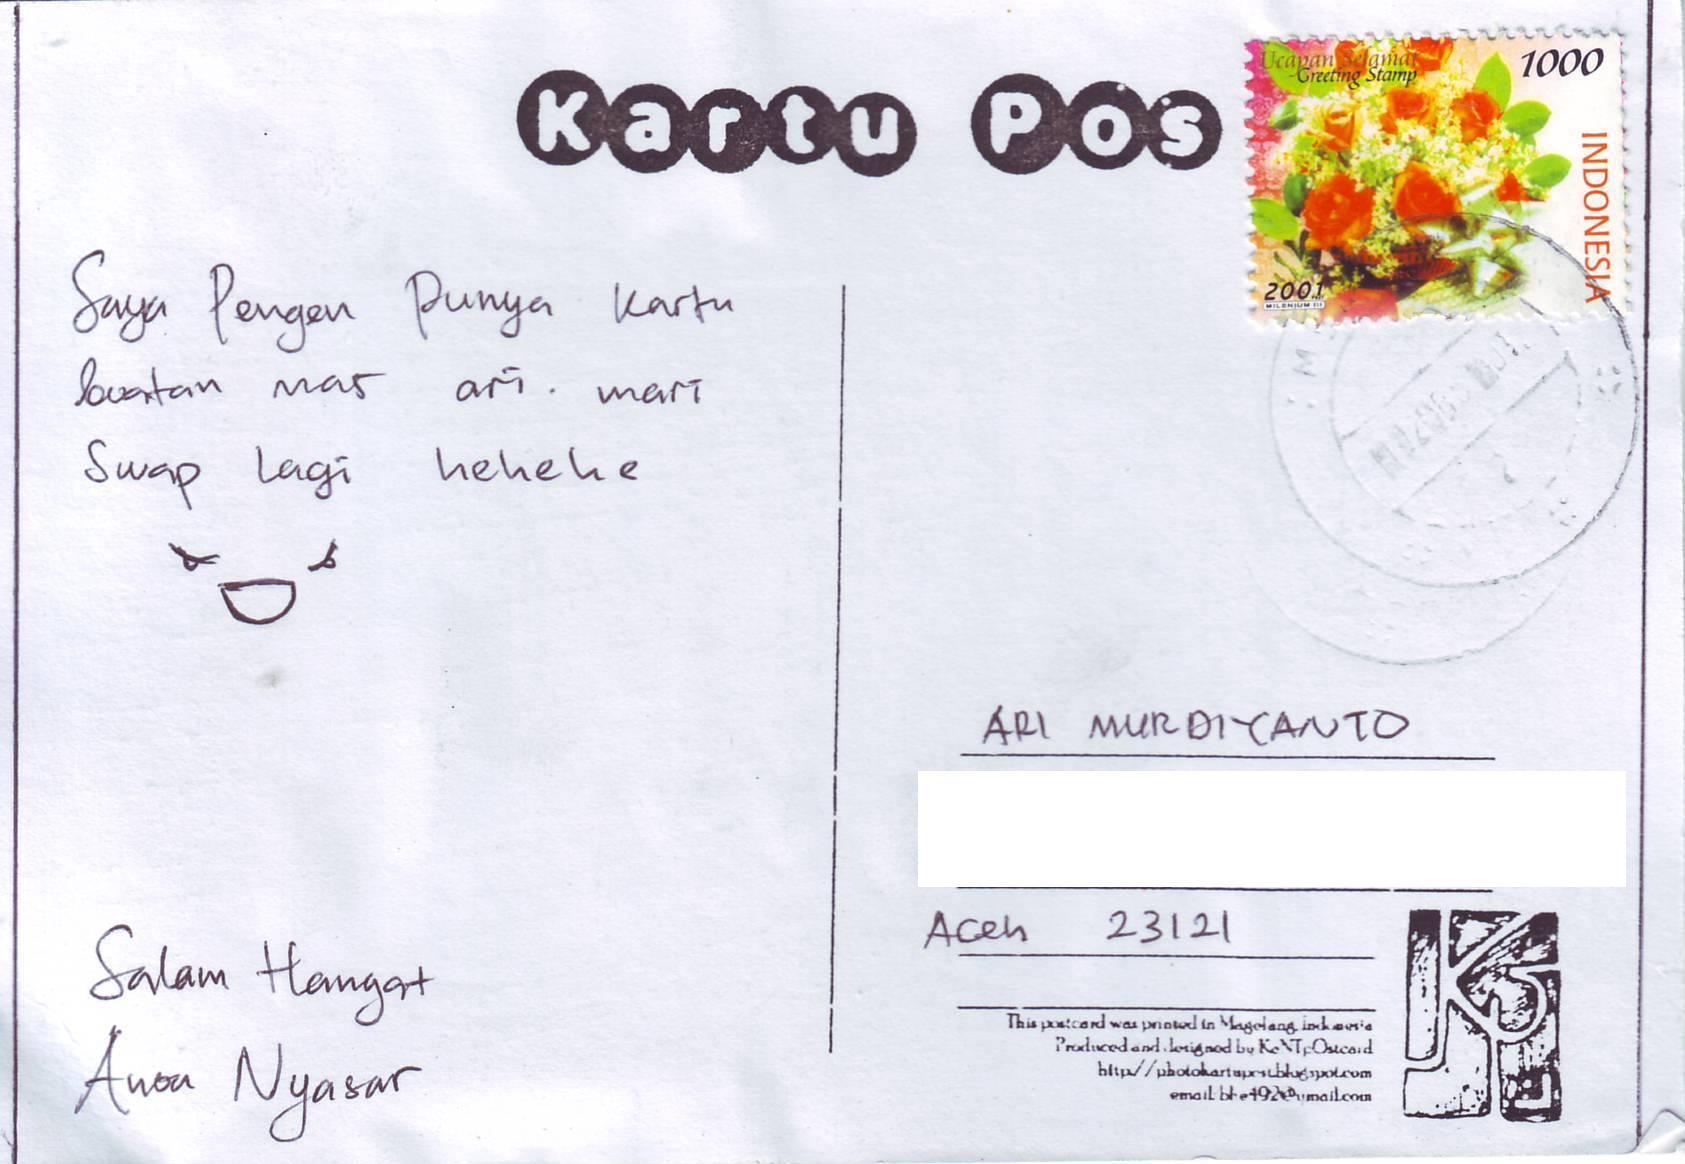 Kartu Pos
Ucapan Selamat
Greeting Stamp
1000
INDONESIA
2001
MILENIUM III
Saya Pengen Punya Kartu
buatan mas ari. mari
Swap Lagi hehehe
Salam Hangat
Nyasar
ARI MURDIYANTO
Aceh 23121
This postcard was printed in Magelang, indonesia
Produced and designed by KeNTpOstcard
http://photokartupost.blogspot.com